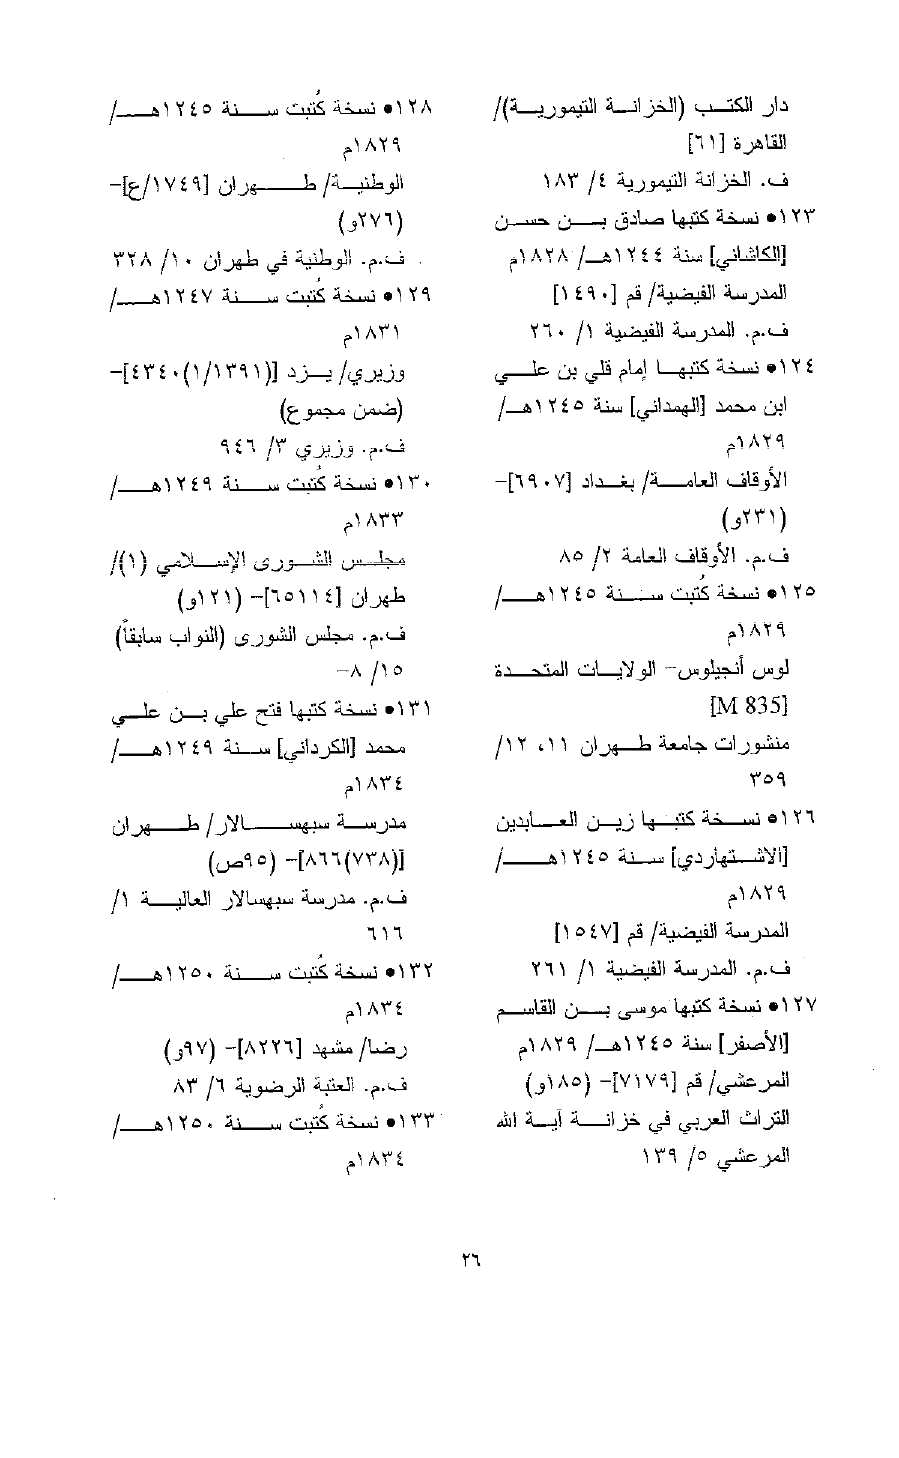 دار الكتب (الخزانة التيمورية)/
القاهرة [٦١]
ف. الخزانة التيمورية ٤/ ١٨٣
١٢٣• نسخة كتبها صادق بن حسن
[الكاشاني] سنة ١٢٤٤هـ/ ١٨٢٨م
المدرسة الفيضية/ قم [١٤٩٠]
ف.م. المدرسة الفيضية ١/ ٢٦٠
١٢٤• نسخة كتبها إمام قلي بن علي
ابن محمد [الهمداني] سنة ١٢٤٥هـ/
١٨٢٩م
الأوقاف العامة/ بغداد [٦٩٠٧]-
(٢٣١و)
ف.م. الأوقاف العامة ٢/ ٨٥
١٢٥• نسخة كُتبت سنة ١٢٤٥هـ/
١٨٢٩م
لوس أنجيلوس- الولايات المتحدة
[M 835]
منشورات جامعة طهران ١١، ١٢/
٣٥٩
١٢٦• نسخة كتبها زين العابدين
[الاشتهاردي] سنة ١٢٤٥هـ/
١٨٢٩م
المدرسة الفيضية/ قم [١٥٤٧]
ف.م. المدرسة الفيضية ١/ ٢٦١
١٢٧• نسخة كتبها موسى بن القاسم
[الأصفر] سنة ١٢٤٥هـ/ ١٨٢٩م
المرعشي/ قم [٧١٧٩]- (١٨٥و)
التراث العربي في خزانة آية الله
المرعشي ٥/ ١٣٩
١٢٨• نسخة كُتبت سنة ١٢٤٥هـ/
١٨٢٩م
الوطنية/ طهران [١٧٤٩/ع]-
(٢٧٦و)
ف.م. الوطنية في طهران ١٠/ ٣٢٨
١٢٩• نسخة كُتبت سنة ١٢٤٧هـ/
١٨٣١م
وزيري/ يزد [(١/١٣٩١)٤٣٤٠]-
(ضمن مجموع)
ف.م. وزيري ٣/ ٩٤٦
١٣٠• نسخة كُتبت سنة ١٢٤٩هـ/
١٨٣٣م
مجلس الشورى الإسلامي (١)/
طهران [٦٥١١٤]- (١٢١و)
ف.م. مجلس الشورى (النواب سابقاً)
١٥/ ٨-
١٣١• نسخة كتبها فتح علي بن علي
محمد [الكرداني] سنة ١٢٤٩هـ/
١٨٣٤م
مدرسة سبهسالار/ طهران
[(٧٣٨)٨٦٦]- (٩٥ص)
ف.م. مدرسة سبهسالار العالية ١/
٦١٦
١٣٢• نسخة كُتبت سنة ١٢٥٠هـ/
١٨٣٤م
رضا/ مشهد [٨٢٢٦]- (٩٧و)
ف.م. العتبة الرضوية ٦/ ٨٣
١٣٣• نسخة كُتبت سنة ١٢٥٠هـ/
١٨٣٤م
٢٦